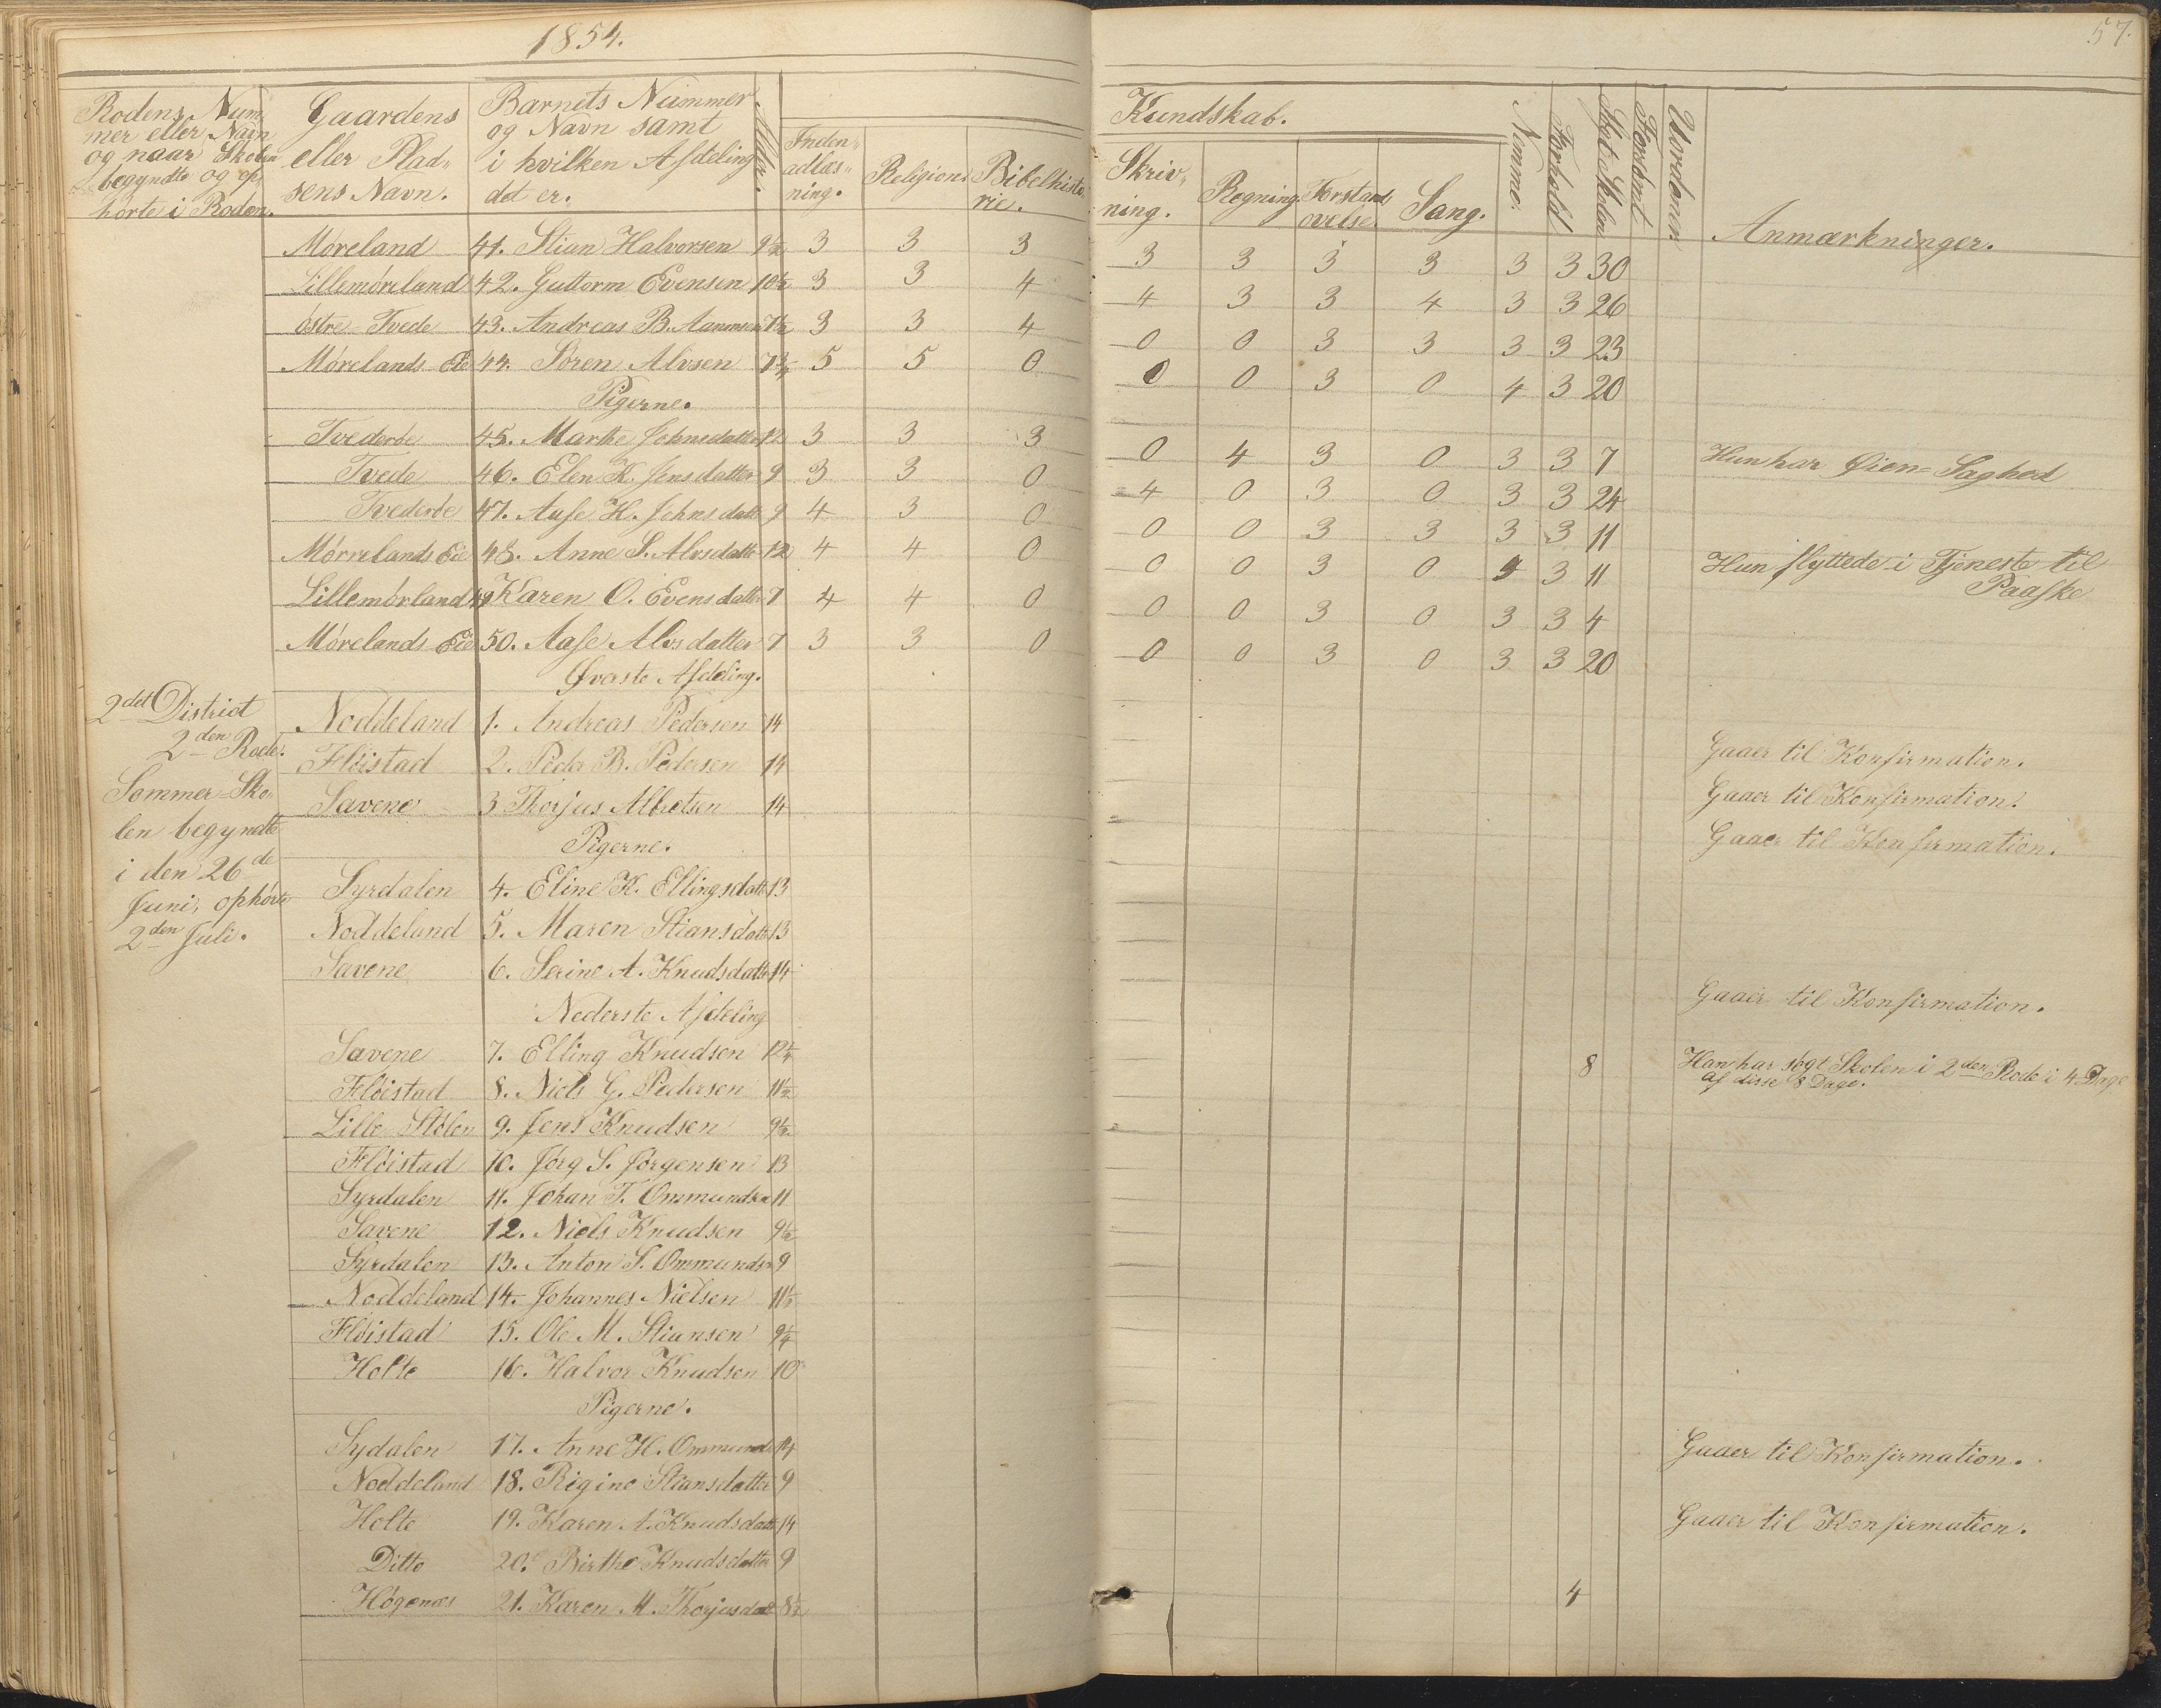 1854.
57.
Rodens Num
mer eller Navn
og naar Skolen
begyndte og op
hørte i Roden.
Gaardens
eller Plad-
sens Navn.
Barnets Nummer
og Navn samt
i hvilken Afdeling
det er.
Alder.
Inden-
adlæs-
ning.
Religion
Bibelhisto
rie.
Kundskab.
Skriv-
ning.
Regning.
Forstands
øvelse.
Sang.
Nemme.
Forhold
Søgt Skolen
Forsømt
Uordener
Anmærkninger.
Møreland 41. Stian Halvorsen 9½ 3 3 3 3 3 3 3 3 3 30
Lillemøreland 42. Guttorm Evensen 10½ 3 3 4 4 3 3 4 3 3 26
østre Tvede 43. Andreas B. Aanensen 7½ 3 3 4 0 0 3 3 3 3 23
Mørelands Eie 44. Søren Alvsen 7¾ 5 5 0 0 0 3 0 4 3 20
Pigerne.
Tvederøe 45. Marthe Johnsdatter 12 3 3 3 0 4 3 0 3 3 7 Hun har Øien-Saghed
Tvede 46. Elen K. Jensdatter 9 3 3 0 4 0 3 0 3 3 24
Tvederøe 47. Aase H. Johnsdatt 9 4 3 0 0 0 3 3 3 3 11
Mørrelands Eie 48. Anne S. Alvsdatter 12 4 4 0 0 0 3 0 3 11 Hun flyttede i Tjeneste til
Paaske
Lillemørland 49 Karen O. Evensdatter 7 4 4 0 0 0 3 0 3 3 4
Mørelands Eie 50. Aase Alvsdatter 7 3 3 0 0 0 3 0 3 3 20
Øverste Afdeling.
2det District
2den Rode.
Sommer-Sko
len begyndte
i den 26de
Juni, ophørte
2den Juli.
Noddeland 1. Andreas Pedersen 14 Gaaer til Konfirmation.
Fløistad 2. Peder B. Pedersen 14 Gaaer til Konfirmation.
Savene 3 Thorjus Albretsen 14 Gaaer til Konfirmation.
Pigerne.
Syrdalen 4. Eline K. Ellingsdatt 13
Noddeland 5. Maren Stiansdatt 13
Savene 6. Serine A. Knudsdatter 14 Gaaer til Konfirmation.
Nederste Afdeling
Savene 7. Elling Knudsen 12¼ 8 Han har søgt Skolen i 2den Rode i 4 Dage
af disse 8 Dage.
Fløistad 8. Niels G. Pedersen 11½
Lille Stølen 9. Jens Knudsen 9½
Fløistad 10. Jørg S. Jørgensen 13
Syrdalen 11. Johan T. Ommundsen 11
Savene 12. Niels Knudsen 9½
Syrdalen 13. Anton S. Ommunds 9
Noddeland 14. Johannes Nielsen 11½
Fløistad 15. Ole M. Stiansen 9¼
Holte 16. Halvor Knudsen 10
Pigerne.
Sydalen 17. Anne H. Ommunds 14 Gaaer til Konfirmation.
Noddeland 18. Rigine Stiansdatter 9
Holte 19. Karen A. Knudsdatt 14 Gaaer til Konfirmation.
Ditto 20. Birthe Knudsdatter 9
Høgenæs 21. Karen M. Thorjusdatt 8½ 4